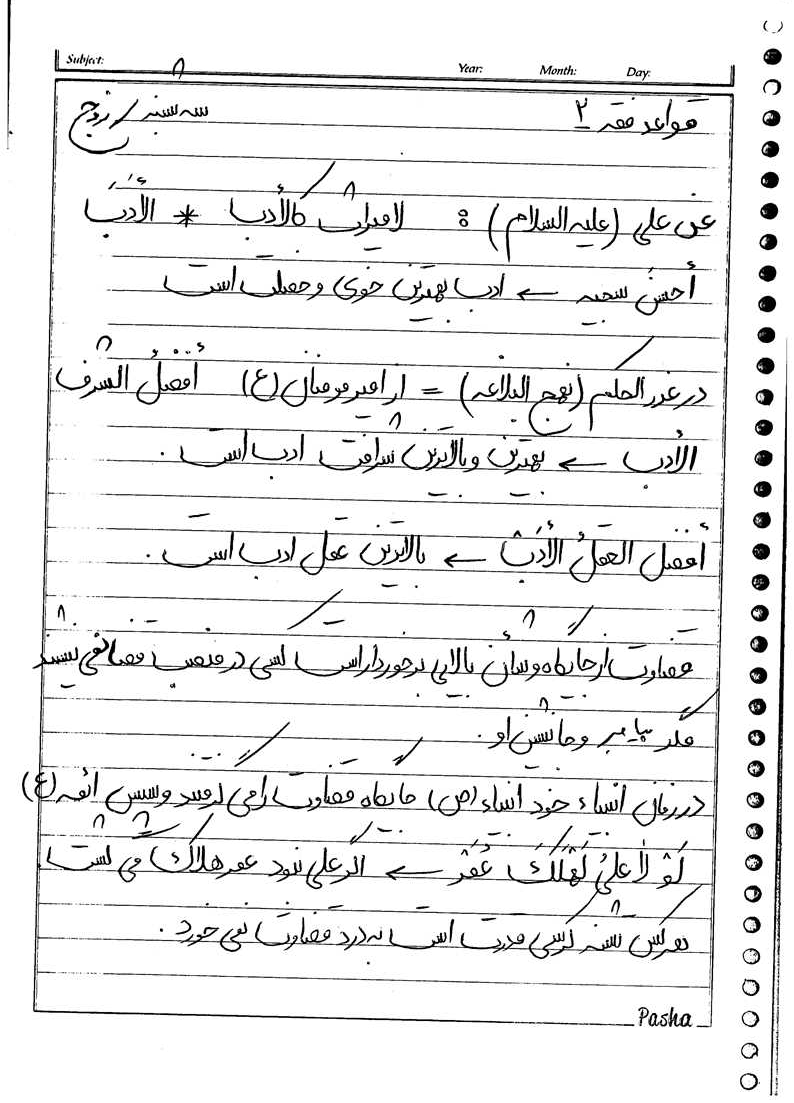 Subject: Year: Month: Day:
۸
قواعد فقه ۲ سه شنبه / زوج
عن علی (علیه السلام) : لا میراث کالأدب * الأدَبَ
أحسنَ سجیه ← ادب بهترین خوی و خصلت است
در غرر الحکم (نهج البلاغه) = از امیر مومنان (ع) أفضلُ الشرف
الأدب ← بهترین و بالاترین شرافت ادب است .
أفضل العقلُ الأدَبُ ← بالاترین عقل ادب است .
قضاوت از جایگاه و شأن بالایی برخوردار است کسی در منصب قضا نمی نشیند
مگر پیامبر و جانشین او .
در زمان انبیاء خود انبیاء (ص) جایگاه قضاوت را می گرفتند و سپس ائمه (ع)
لَوْ لاٰ علیُ لَهَلَکَ عُمَرْ ← اگر علی نبود عمر هلاک می گشت .
هر کس تشنه کرسی قدرت است به درد قضاوت نمی خورد .
Pasha